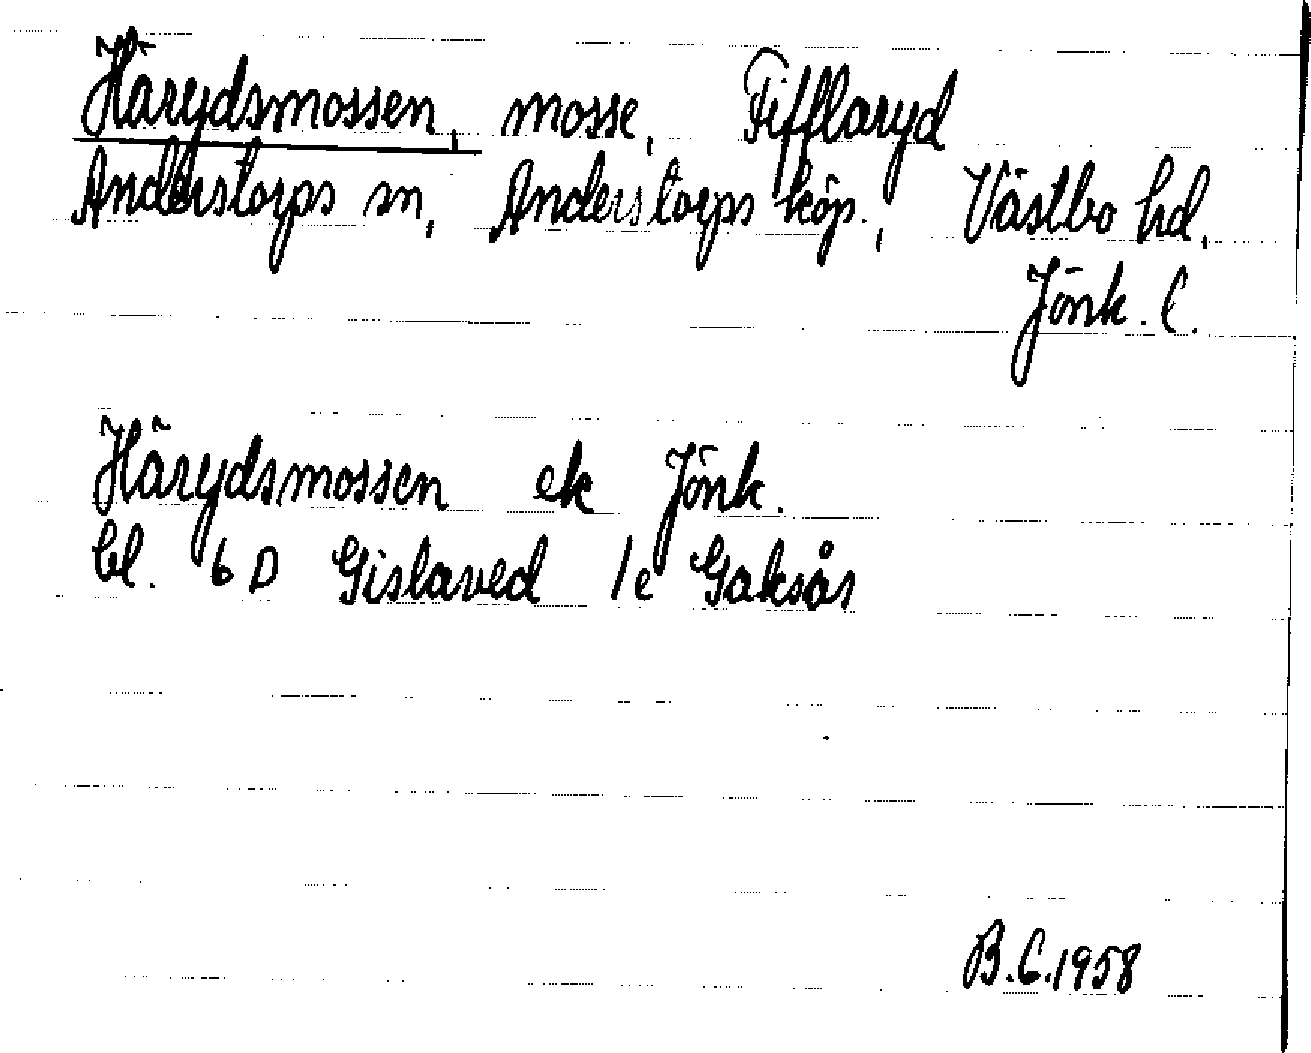 Härydsmossen, mosse, Fifflaryd
Anderstorps sn, Anderstorps köp., Västbo hd,
Jönk. l.
Härydsmossen ek Jönk.
bl. 6 D Gislaved 1e Gaksås
B.C. 1958